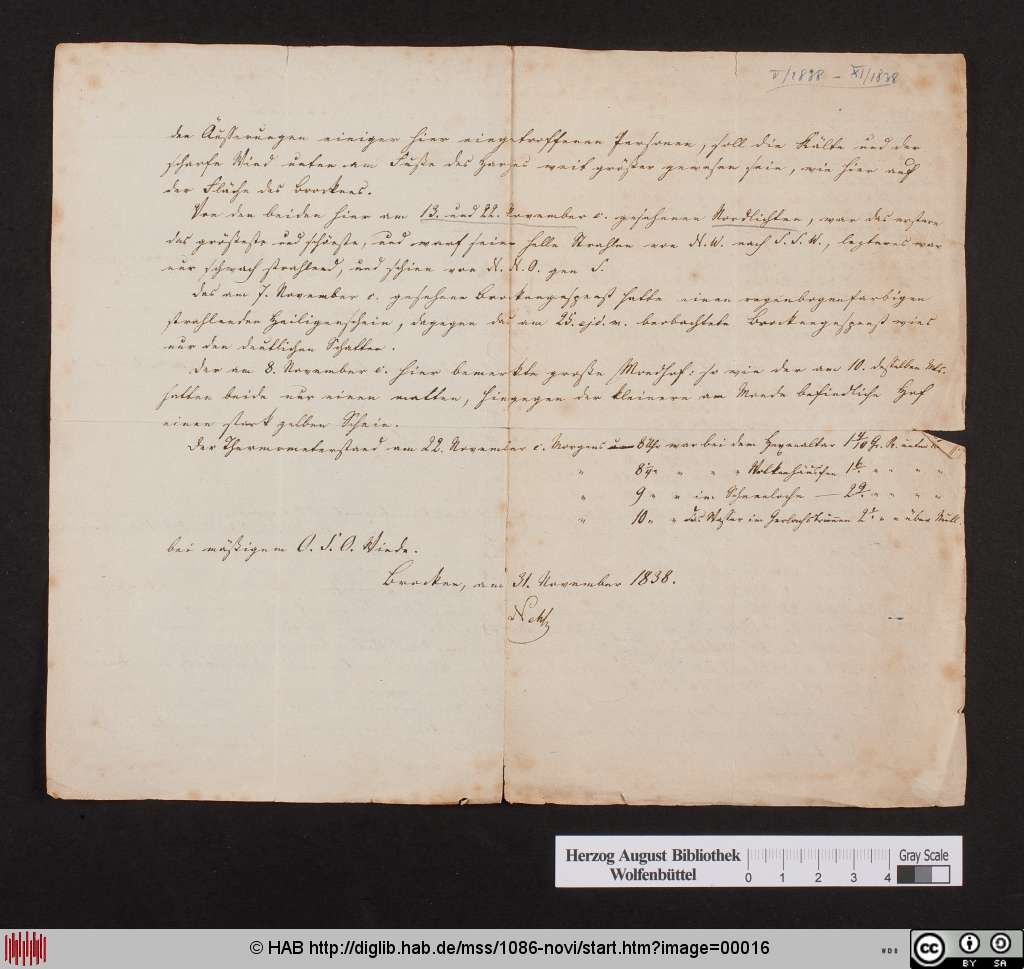 V/1838 – XI/1838
den Äußerungen einiger hier eingetroffenen Personen, soll die Kälte und der
scharfe Wind unten am Fuße des Harzes weit größer gewesen sein, wie hier auf
der Fläche des Brockens.
Von den beiden hier am 13. und 22. November c. gesehenen Nordlichten, war das erstere
das größeste und schönste, und warf seine helle Strahlen von N. W. nach S. S. W., letzteres war
nur schwach strahlend, und schien von N. N. O. gen S.
Das am 7. November c. gesehene Brockengespenst hatte einen regenbogenfarbigen
strahlenden Heiligenschein, dagegen das am 25. ejd. m. beobachtete Brockengespenst wies
nur den deutlichen Schatten.
Der am 8. November c. hier bemerkte große Mondhof: so wie der am 10. desselben Mts.
hatten beide nur einen matten, hingegen der kleinere am Monde befindliche Hof
einen stark gelben Schein.
Der Thermometerstand am 22. November c. Morgens 8 Uhr war bei dem Hexenaltar 1 4/10 Gr. R. unter
" 8½ " " " " Wolkenhäuschen 1 " " " "
" 9 " " im Schneeloche — 2 " " " "
" 10 " " das Wasser im Gerlachsbrunnen 2 " " über Null.
bei mäßigem O. S. O. Winde.
Brocken, am 31. November 1838.
Nehse
Herzog August Bibliothek
Wolfenbüttel
0 1 2 3 4
Gray Scale
© HAB http://diglib.hab.de/mss/1086-novi/start.htm?image=00016
WDB
cc BY SA